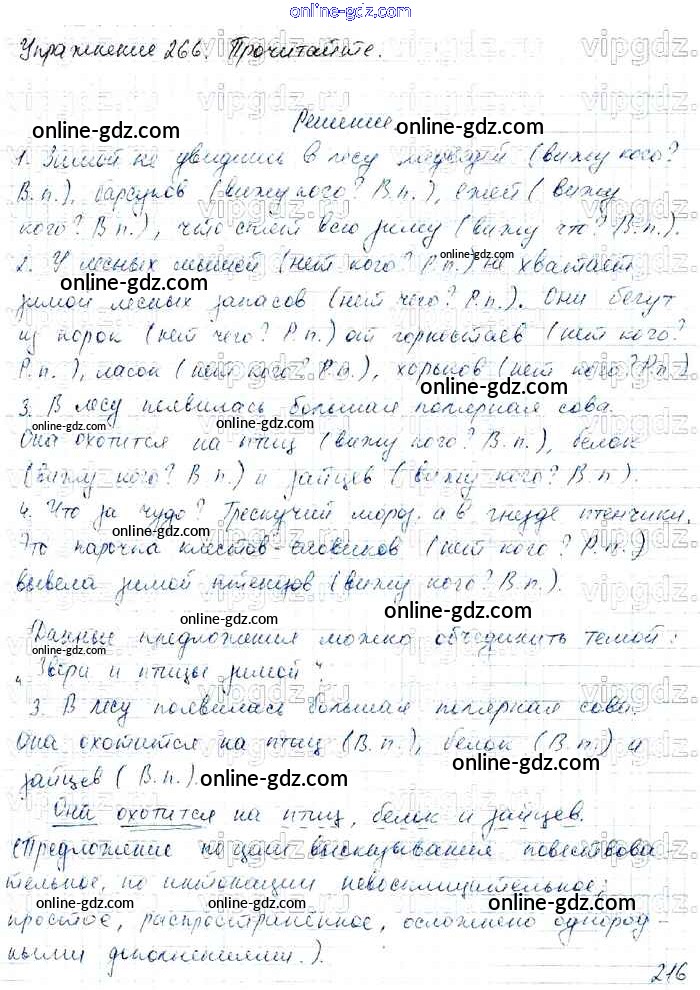 online-gdz.com
Упражнение 266. Прочитайте.
Решение
online-gdz.com
1. Зимой не увидишь в лесу медведей (вижу кого?
В.п.), барсуков (вижу кого? В.п.), ежей (вижу
кого? В.п.), что спит всю зиму (вижу что? В.п.).
2. У лесных мышей (нет кого? Р.п.) не хватает
зимой лесных запасов (нет чего? Р.п.). Они бегут
из норок (нет чего? Р.п.) от горностаев (нет кого?
Р.п.), ласок (нет кого? Р.п.), хорьков (нет кого? Р.п.)
3. В лесу появилась большая полярная сова.
Она охотится на птиц (вижу кого? В.п.), белок
(вижу кого? В.п.) и зайцев (вижу кого? В.п.).
4. Что за чудо? Трескучий мороз, а в гнезде птенчики.
Это парочка клестов-еловиков (нет кого? Р.п.)
вывела зимой птенцов (вижу кого? В.п.).
Данные предложения можно объединить темой:
"Звери и птицы зимой".
3. В лесу появилась большая полярная сова.
Она охотится на птиц (В.п.), белок (В.п.) и
зайцев (В.п.).
online-gdz.com
Они охотится на птиц, белок и зайцев.
(Предложение по цели высказывания повествова
тельное, по интонации невосклицательное,
простое, распространённое, осложнено однород-
ными дополнениями.).
216